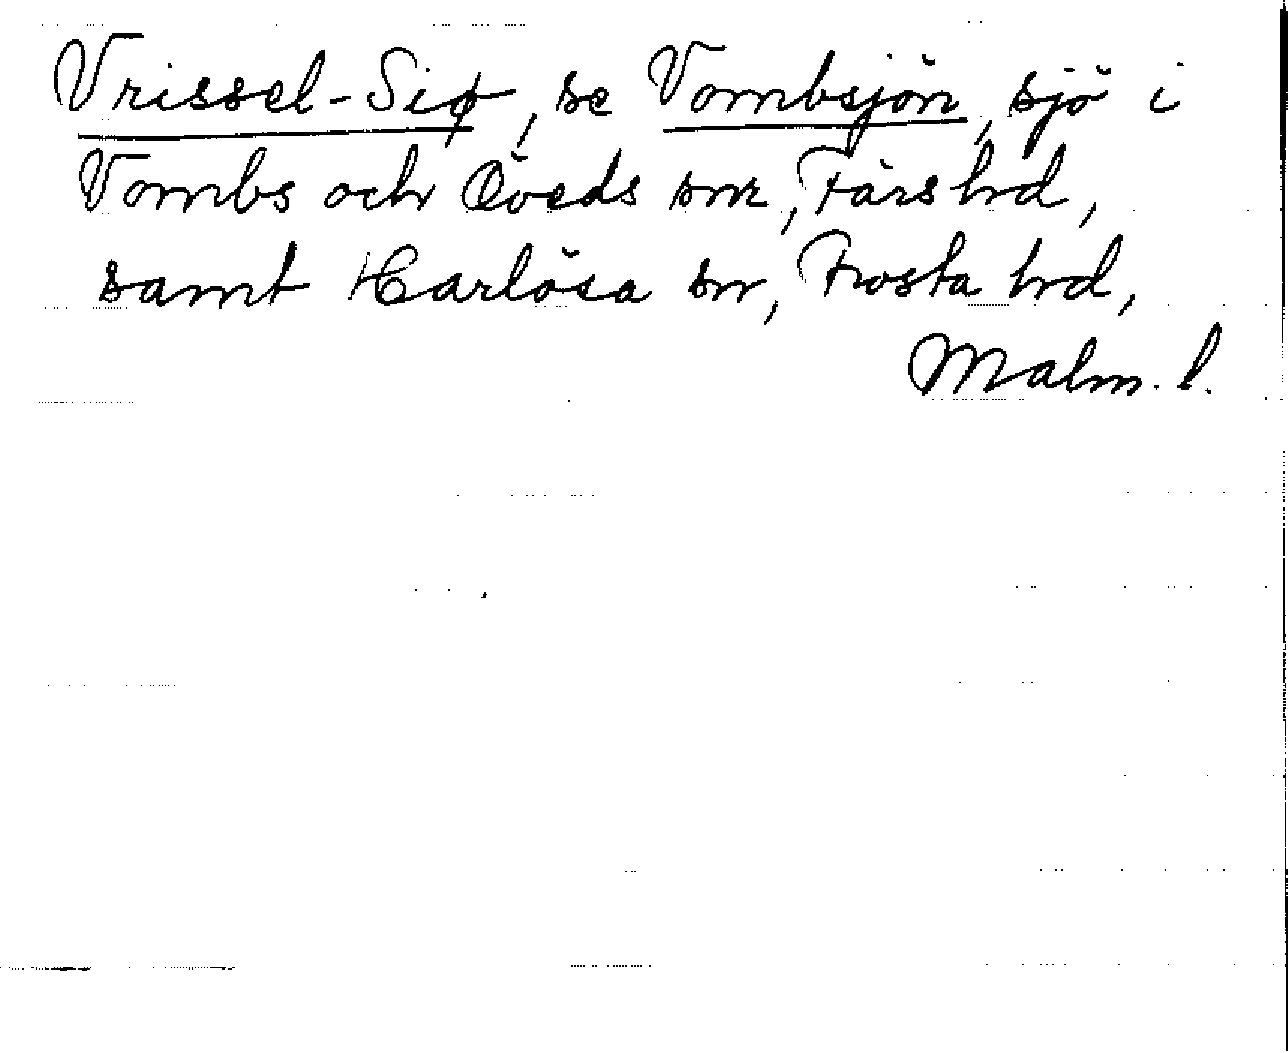 Vrissel-Siø, se Vombsjön, sjö i
Vombs och Öveds snr, Färs hrd,
samt Harlösa sn, Frosta hrd,
Malm. l.